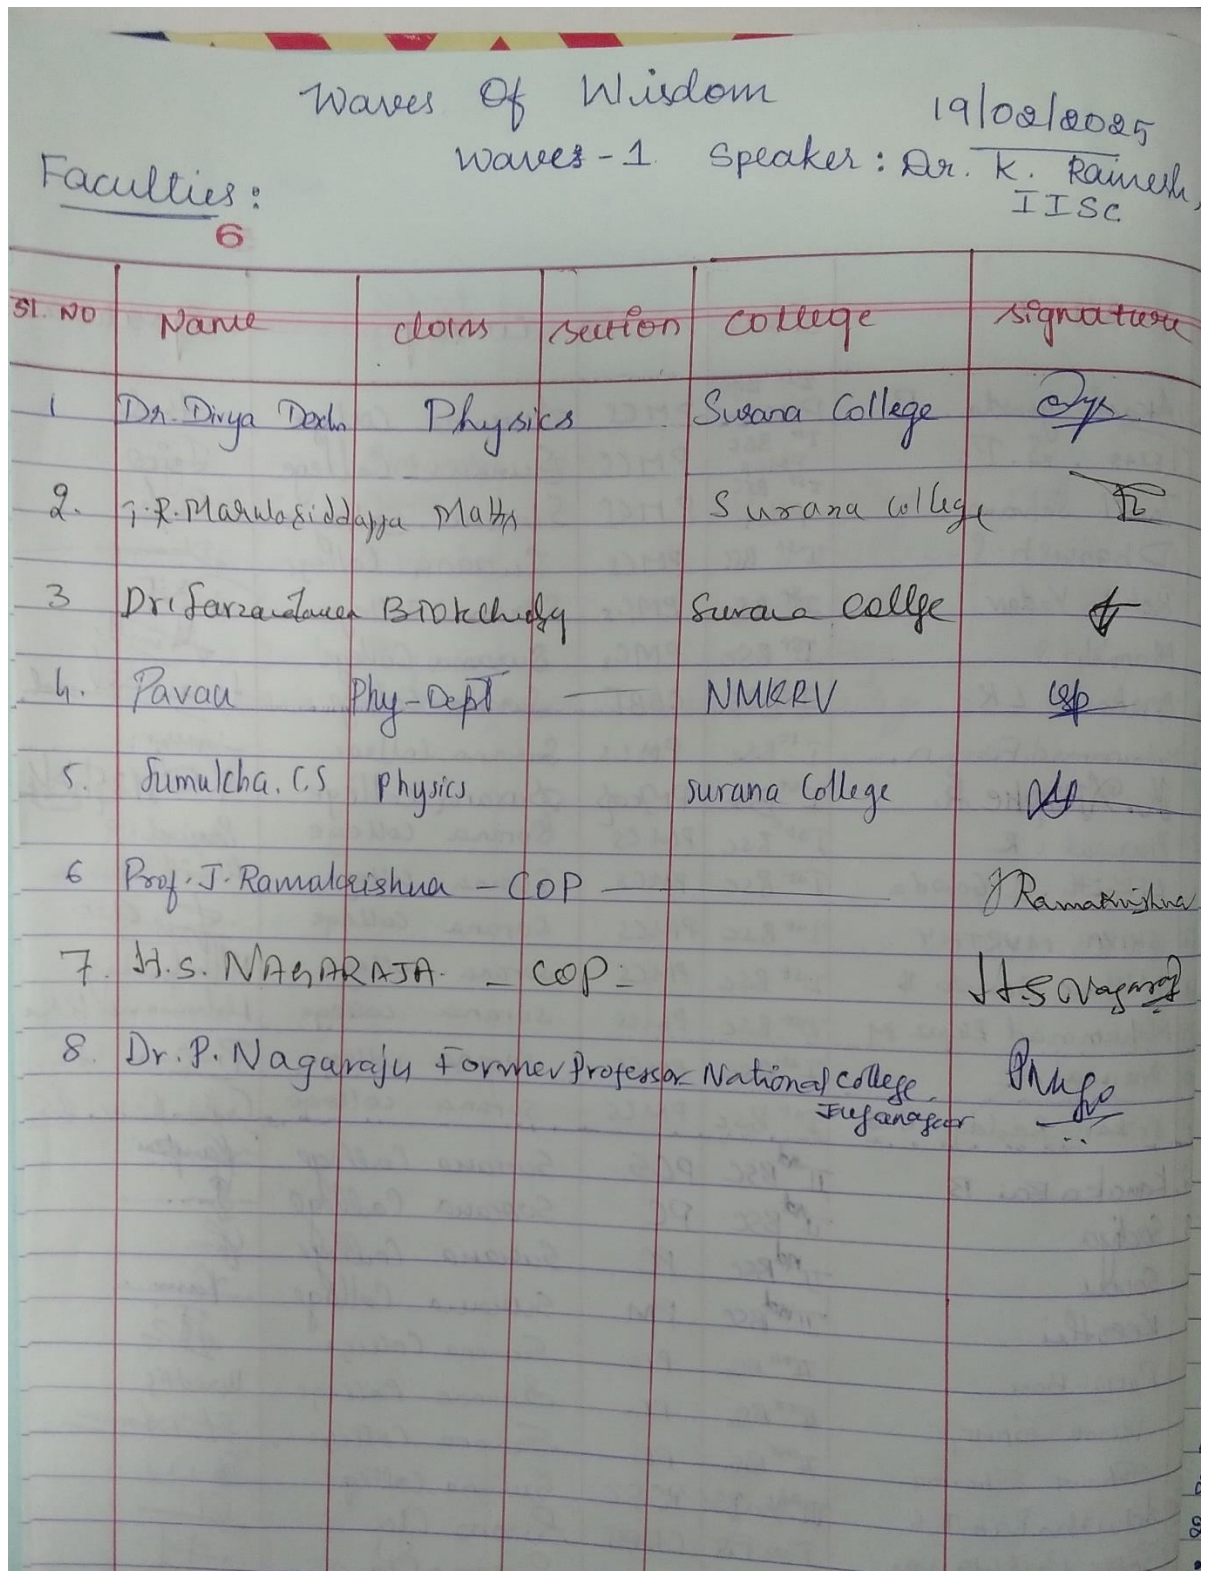 Waves Of Wisdom
19/02/2025
Waves - 1 Speaker : Dr. K. Ramesh,
IISc
Faculties :
6
Sl. No Name class section college signature
1 Dr. Divya Physics Surana College
2. Maths Surana College
3 Dr. Surana College
4. Pavan Phy-Dept — NMKRV
5. Sumukha. C.S Physics Surana College
6 Prof. J. Ramakrishna - COP — J Ramakrishna
7. H.S. NAGARAJA. - COP - H.S Nagaraj
8. Dr. P. Nagaraju Former Professor National College,